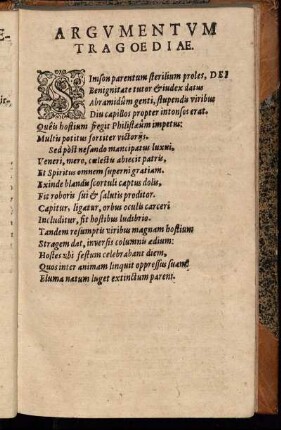 ARGVMENTVM
TRAGOEDIAE.
SImson parentum sterilium proles, DEI
Benignitate tutor & iudex datus
Abramidûm genti, stupendis viribus
Diu capillos propter intonsos erat.
Queis hostium fregit Philistæûm impetus:
Multis potitus fortiter victorijs.
Sed pòst nefando mancipatus luxui,
Veneri, mero, cœlestu abiecit patris,
Et Spiritus omnem superni gratiam.
Exinde blandu scortuli captus dolis,
Fit roboris sui & salutis proditor.
Capitur, ligatur, orbus oculis carceri
Includitur, fit hostibus ludibrio.
Tandem resumptis viribus magnam hostium
Stragem dat, inversis columnis ædium:
Hostes vbi festum celebrabant diem,
Quos inter animam linquit oppressus suam:
Eluma natum luget extinctum parens.